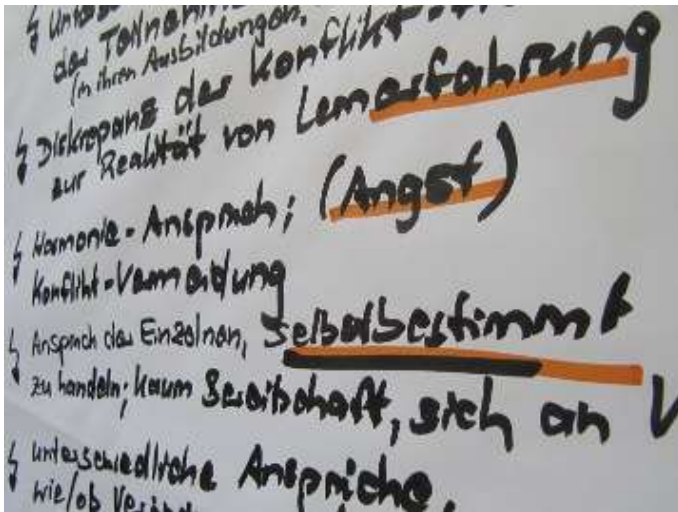 der Teilnehm
(in ihren Ausbildungen,
↯ Diskrepanz der Konflikt-
zur Realität von Lernerfahrung
↯ Harmonie-Anspruch; (Angst)
Konflikt-Vermeidung
↯ Anspruch des Einzelnen, selbstbestimmt
zu handeln; kaum Bereitschaft, sich an V
↯ unterschiedliche Ansprüche,
wie/ob